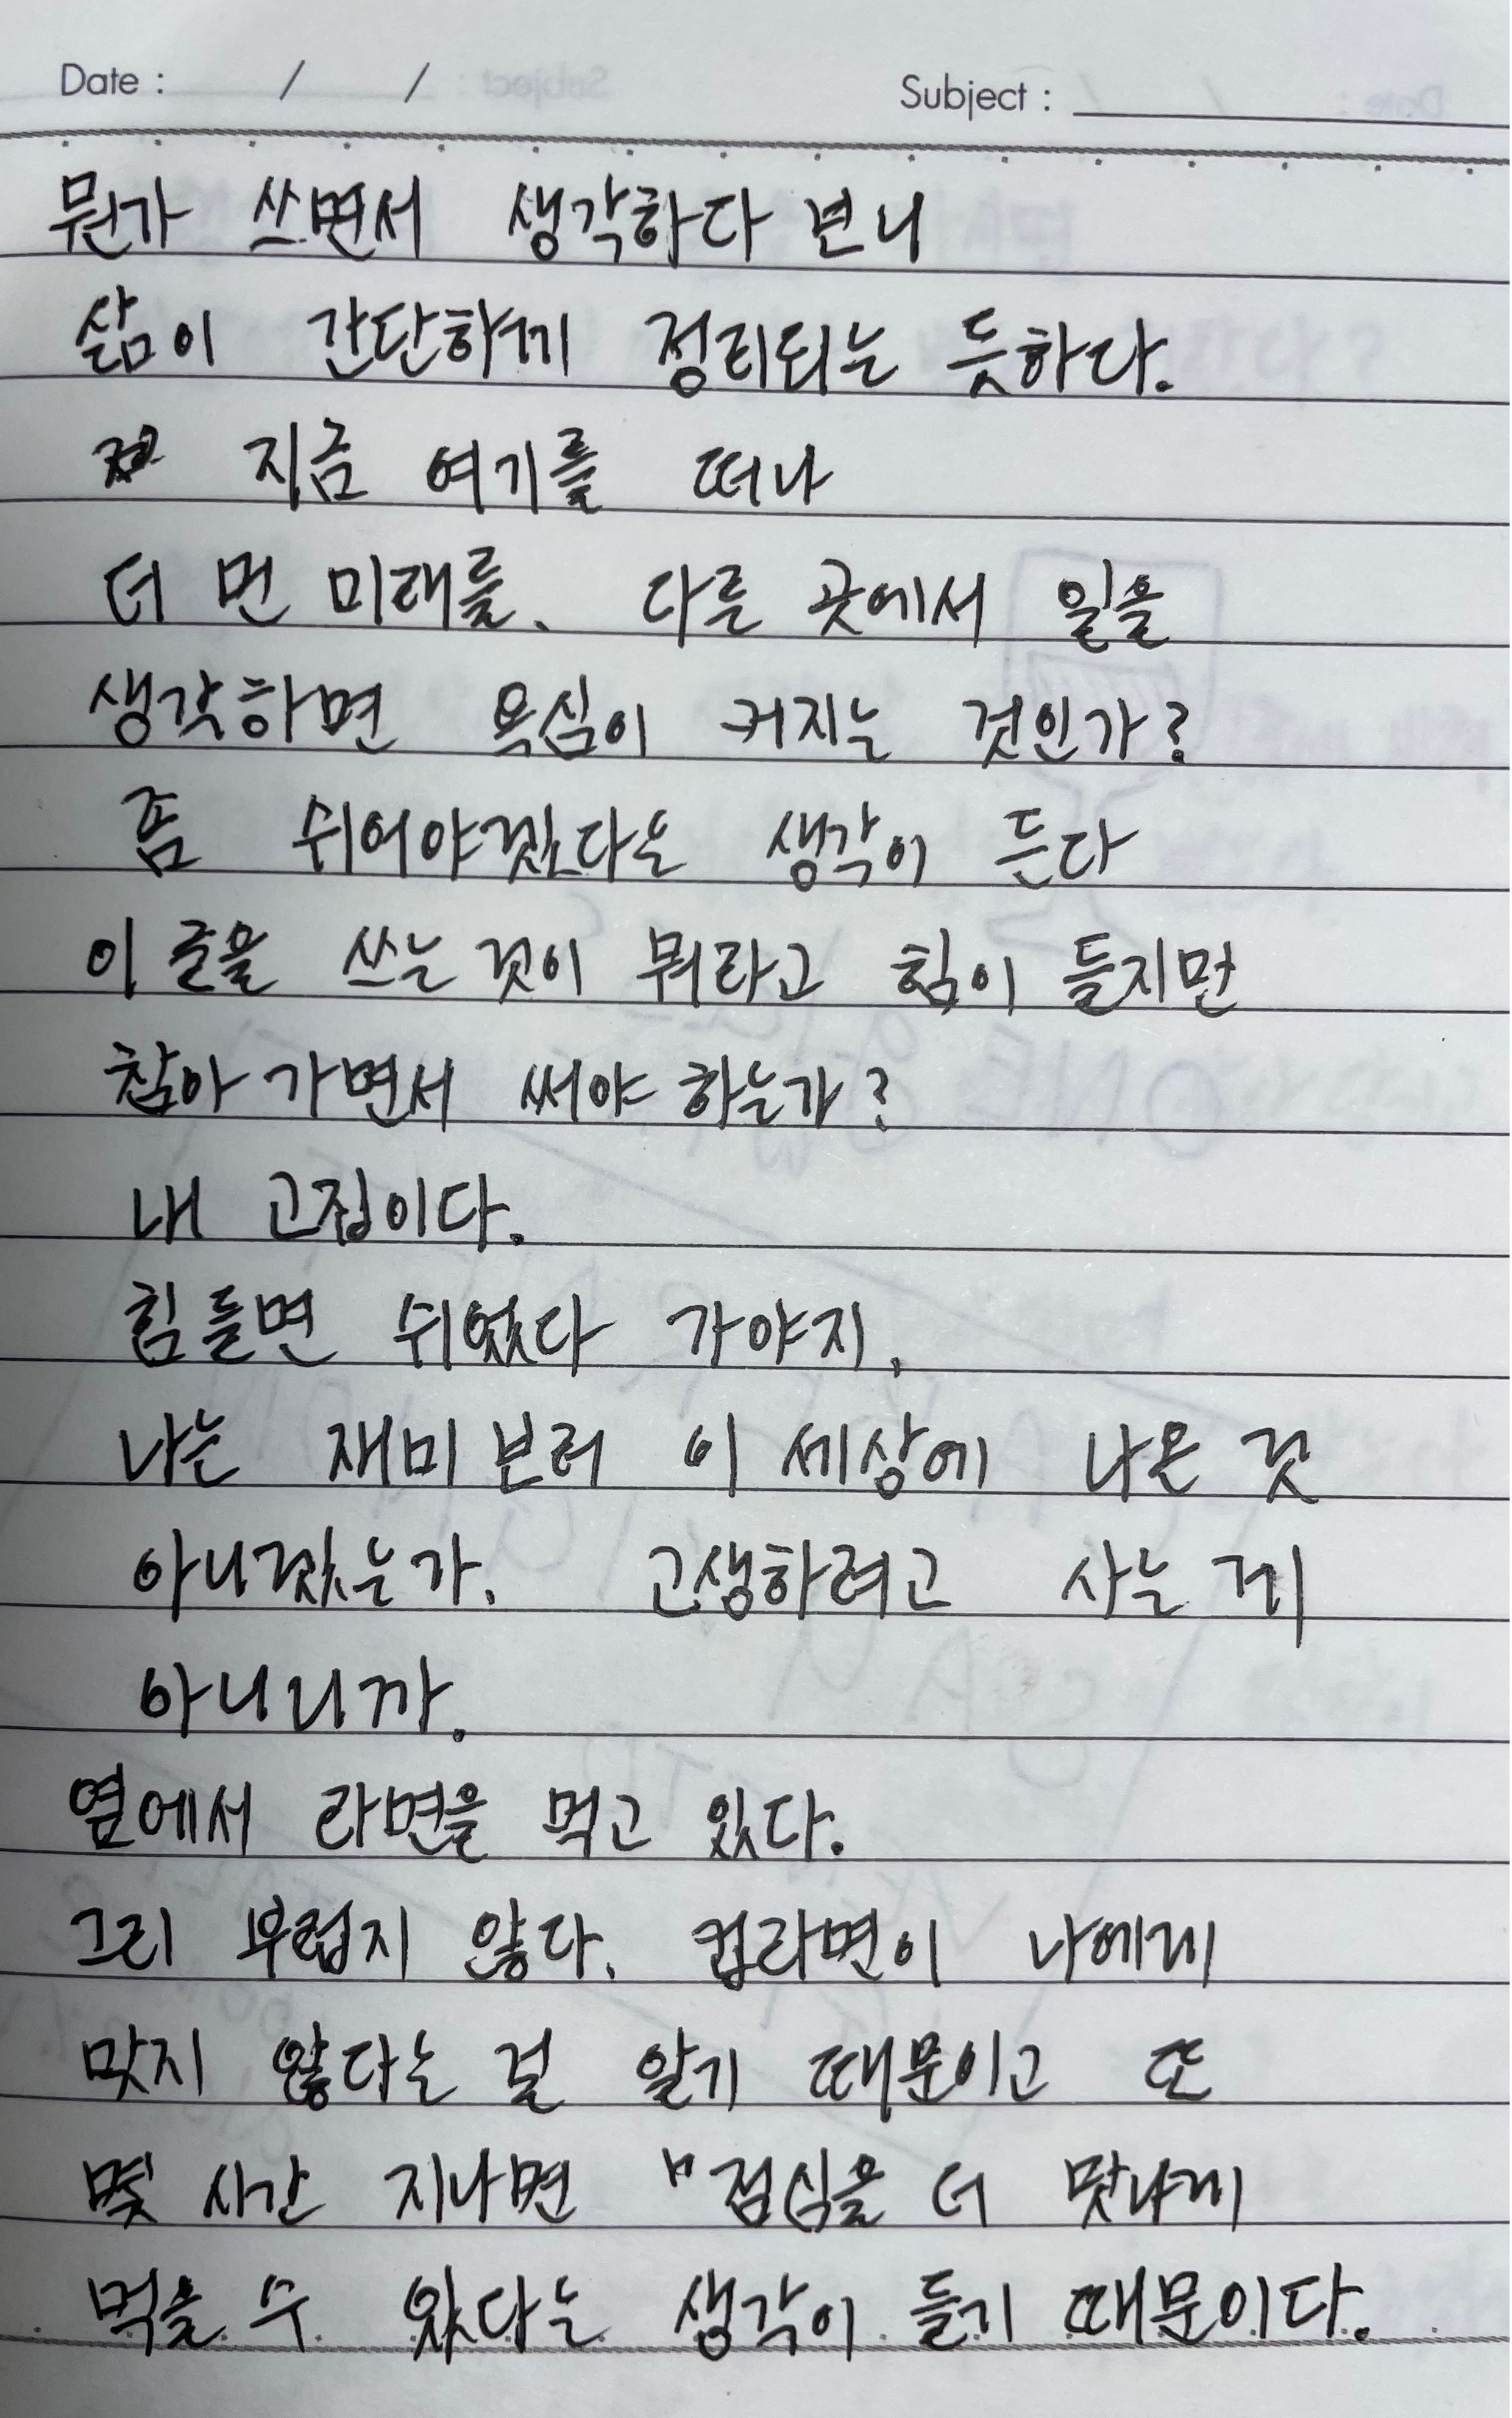 Date : / / Subject :
뭔가 쓰면서 생각하다 보니
삶이 간단하게 정리되는 듯하다.
지금 여기를 떠나
더 먼 미래를, 다른 곳에서 일을
생각하면 욕심이 커지는 것인가?
좀 쉬어야겠다는 생각이 든다
이 글을 쓰는 것이 뭐라고 힘이 들지만
참아 가면서 써야 하는가?
내 고집이다.
힘들면 쉬었다 가야지,
나는 재미 보러 이 세상에 나온 것
아니겠는가. 고생하려고 사는 게
아니니까.
옆에서 라면을 먹고 있다.
그리 부럽지 않다. 컵라면이 나에게
맞지 않다는 걸 알기 때문이고 또
몇 시간 지나면 "점심을 더 맛나게
먹을 수 있다는 생각이 들기 때문이다.